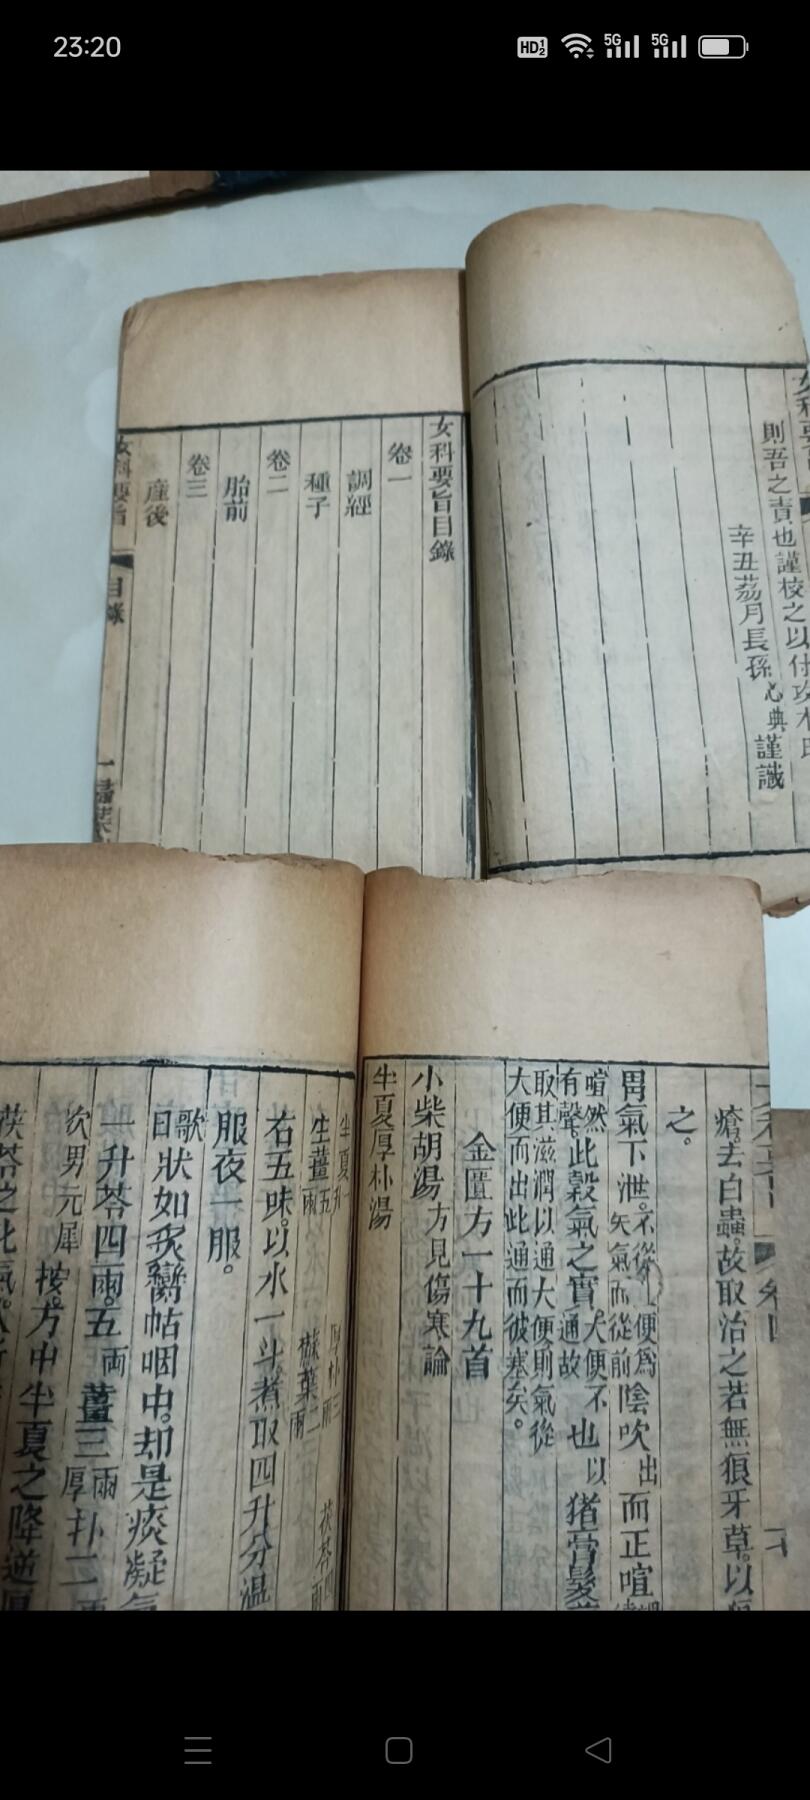 23:20
HD
5G
5G
女科要旨
則吾之責也謹校之以付攻木氏
辛丑荔月長孫心典謹識
女科要旨目錄
卷一
調經
種子
卷二
胎前
卷三
產後
女科要旨
目錄
一
卷四
瘡去白蟲故取治之若無狼牙草以
之。
胃氣下泄不從
矢氣而從前
便爲陰吹出而正喧
喧然
有聲此穀氣之實大便不
通故
也以豬膏髮
取其滋潤以通大便則氣從
大便而出此通而彼塞矣。
金匱方一十九首
小柴胡湯方見傷寒論
半夏厚朴湯
半夏升
厚朴三兩
茯苓四兩
生薑五兩
蘇葉二兩
右五味以水一斗煮取四升分溫
服夜一服。
歌曰
狀如炙臠帖咽中却是痰凝氣
一升苓四兩五兩薑三兩厚朴二
次男元犀按方中半夏之降逆厚
茯苓之化氣